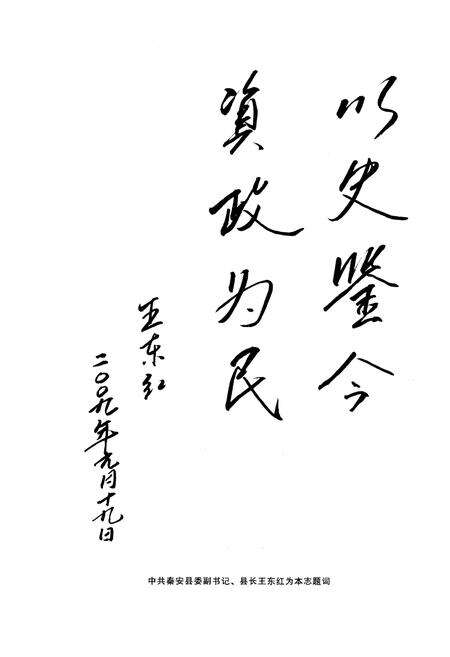 以史鉴今
资政为民
王东红
二〇〇九年元月十九日
中共秦安县委副书记、县长王东红为本志题词